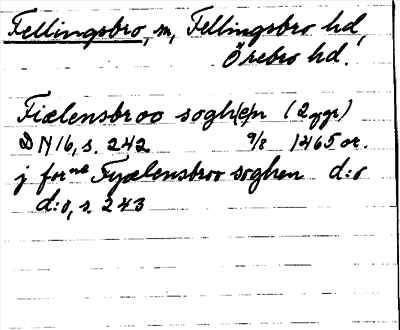 Fellingsbro, sn, Fellingsbro hd,
Örebro hd.
Fiælensbroo sogh(e)n (2 ggr)
DN 16, s. 242 9/8 1465 or.
j for:ne Fyælensbroo soghen d:o
d:o, s. 243